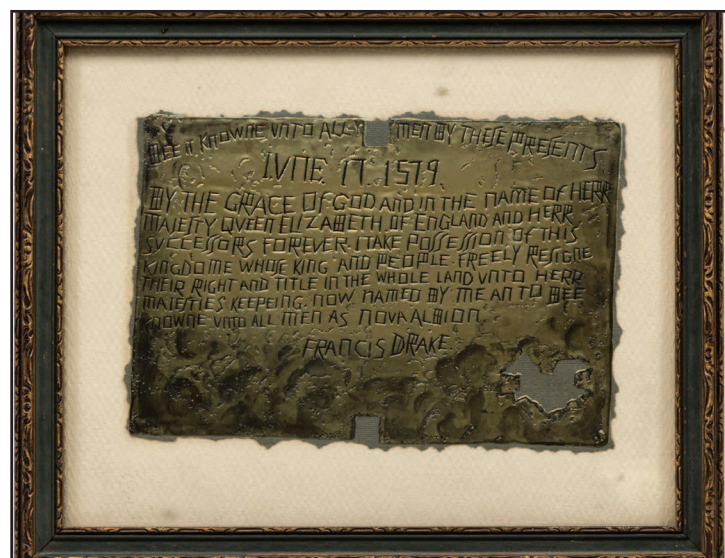 BEE IT KNOWNE VNTO ALL MEN BY THESE PRESENTS
IVNE 17 1579
BY THE GRACE OF GOD AND IN THE NAME OF HERR
MAIESTY QVEEN ELIZABETH OF ENGLAND AND HERR
SVCCESSORS FOREVER I TAKE POSSESSION OF THIS
KINGDOME WHOSE KING AND PEOPLE FREELY RESIGNE
THEIR RIGHT AND TITLE IN THE WHOLE LAND VNTO HERR
MAIESTIES KEEPEING. NOW NAMED BY ME AN TO BEE
KNOWNE VNTO ALL MEN AS NOVA ALBION.
FRANCIS DRAKE